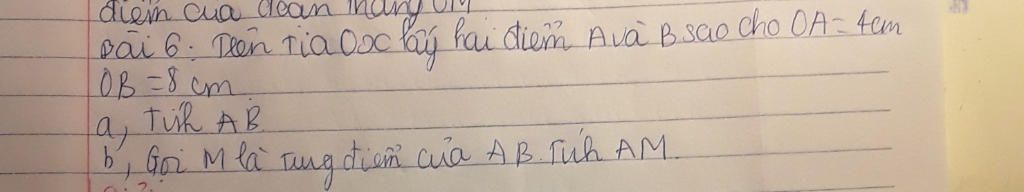 điểm của đoạn thẳng OM
Bài 6: Trên tia Ox lấy hai điểm A và B sao cho OA = 4cm
OB = 8 cm
a, Tính AB
b, Gọi M là Trung điểm của AB. Tính AM.